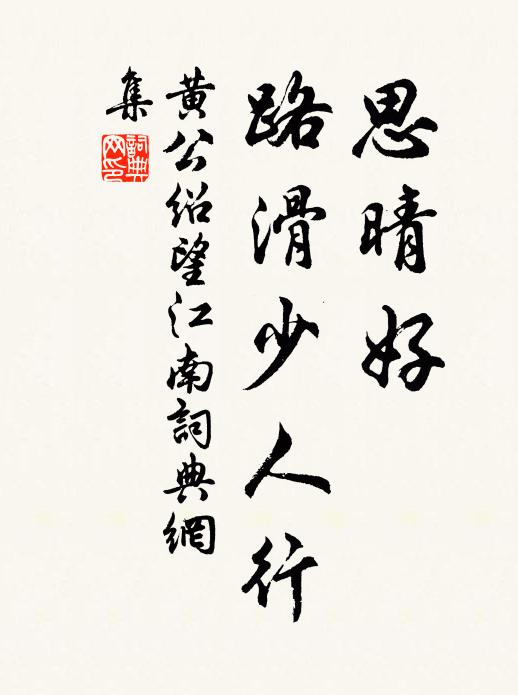 思晴好
路滑少人行
黄公绍望江南詞典網
集
詞典
网印